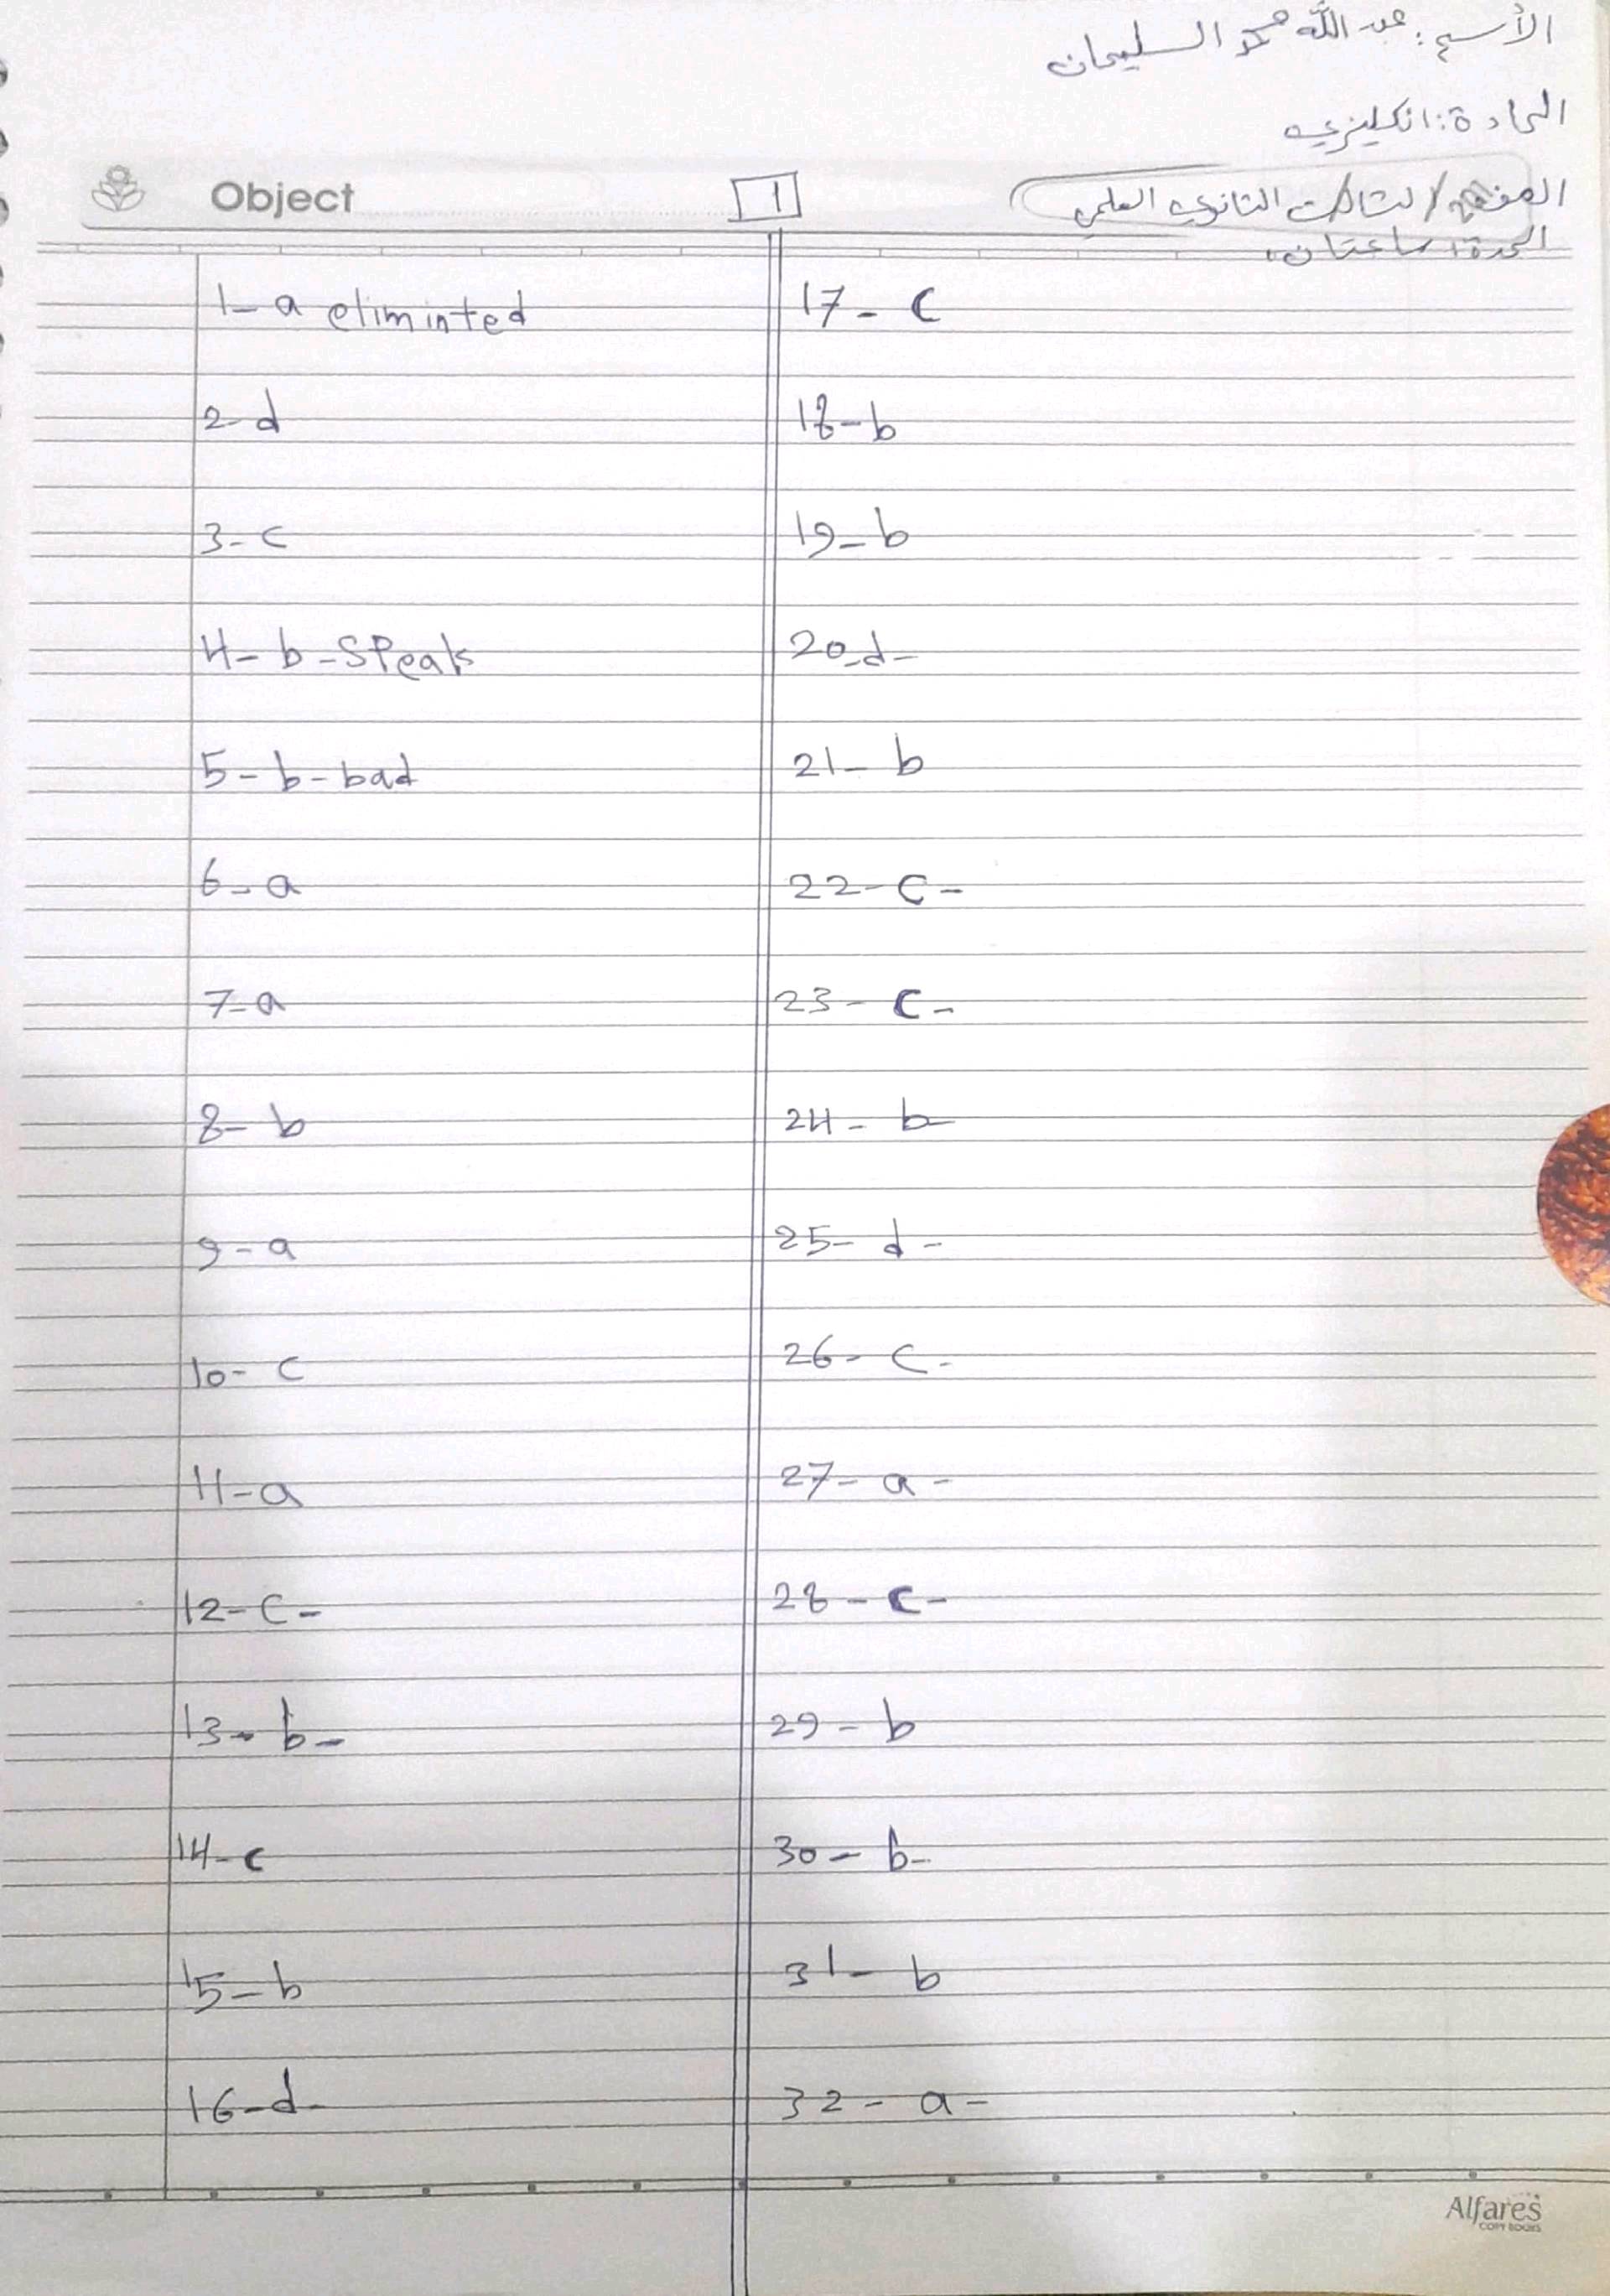 الأسم: عبد الله محمد السليمان
المادة: انكليزي
Object
1
الصف / الثالث الثانوي العلمي
المدة: ساعتان
1- a eliminted
2- d
3- c
4- b - Speak
5- b - bad
6- a
7- a
8- b
9- a
10- c
11- a
12- c -
13- b -
14- c
15- b
16- d -
17- c
18- b
19- b
20- d -
21- b
22- c -
23- c -
24- b
25- d -
26- c -
27- a -
28- c -
29- b
30- b -
31- b
32- a -
Alfares
COPY BOOKS